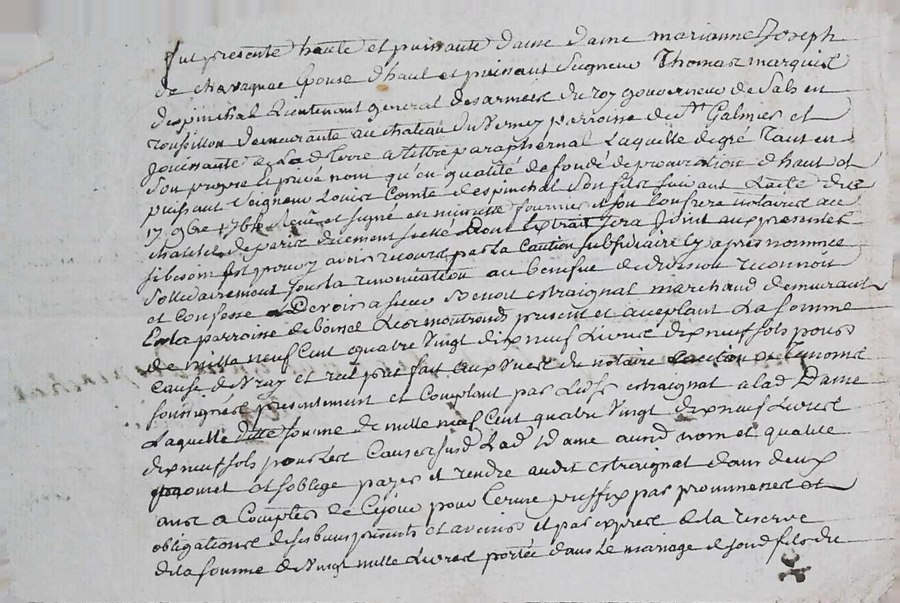 fut presente haute et puissante Dame Dame marianne Joseph
de chavagnac Epouse d'haut et puissant Seigneur Thomas marquis
despinchal Lieutenant general des armées du roy gouverneur de Sals en
rousillon demeurante au chateau du Verney parroisse de St Galmier et
Jouissante de Lad. Terre a tittre paraphernal Laquelle de gré Tant en
Son propre et privé nom qu'en qualité de fondé de procuration d'haut et
puissant Seigneur Louis Comte despinchal Son fils suivant Lacte du
17 9bre 1764 et Signé en minutte fournier et Son Confrere notaires au
chatelet de paris duement scellé dont Extrait Sera Joint aux presentes
si besoin est pour y avoir recours par La Caution subsidiaire cy apres nommée
Solidairement sous La renonciation au benefice de division reconnoit
et Confesse Devoir a sieur Benoit estraignat marchand demeurant
En La parroisse de boisset Les montrond present et aceptant La somme
de mille neuf Cent quatre Vingt dix neuf Livres dix neuf sols pour
Cause de Vray et réel prêt fait aux Vues du notaire et Temoins
soussignés presentement et Comptant par Led. Sr estraignat a lad. Dame
Laquelle ditte Somme de mille neuf Cent quatre Vingt dix neuf Livres
dix neuf sols pour Les Causes susd. Lad. Dame aud. nom et qualité
promet et soblige payer et rendre audit estraignat dans deux
ans a Compter de Cejour pour Terme préffix par promesses et
obligations de ses biens presents et avenir et par exprés de la reserve
de la somme de Vingt mille Livres portée dans Le mariage de foud fils du